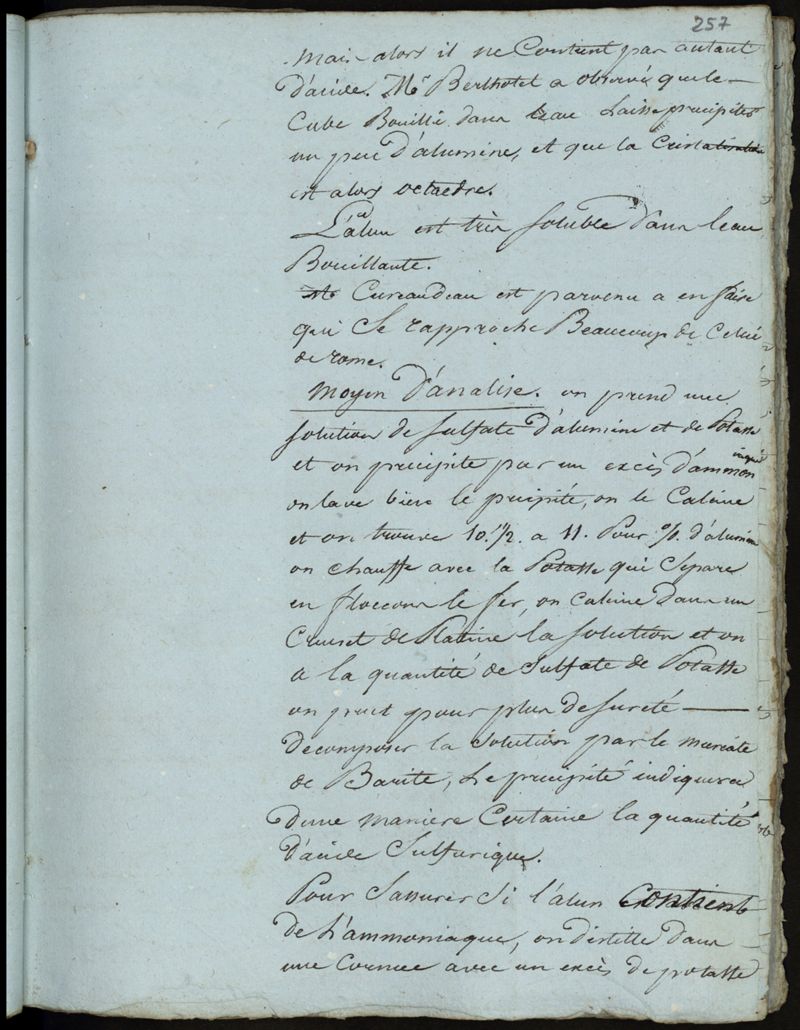 257
mais alors il ne Contient pas autant
d'acide. Mr Bertholet a observé que le
Cube Bouilli dans l'eau Laisse precipiter
un peu d'alumine, et que la Cristalisation
est alors octaedre.
L'alun est très soluble dans l'eau
Bouillante.
Mr Cureaudeau est parvenu a en faire
qui Se rapproche Beaucoup de Celui
de rome.
moyen d'analise. on prend une
solution de sulfate d'alumine et de Potasse
et on precipite par un excès d'ammoniaque
on lave bien le precipité, on le Calcine
et on trouve 10.1/2. a 11. Pour %. d'alumine
on chauffe avec la Potasse qui Separe
en floccons le fer, on calcine dans un
Creuset de Platine la solution et on
a la quantité de Sulfate de Potasse
on peut pour plus de sureté
decomposer la solution par le muriate
de Barite, Le precipité indiquera
d'une manière Certaine la quantité
d'acide Sulfurique.
Pour S'assurer Si l'alun Contient
de L'ammoniaque, on distille dans
une Cornue avec un excès de potasse